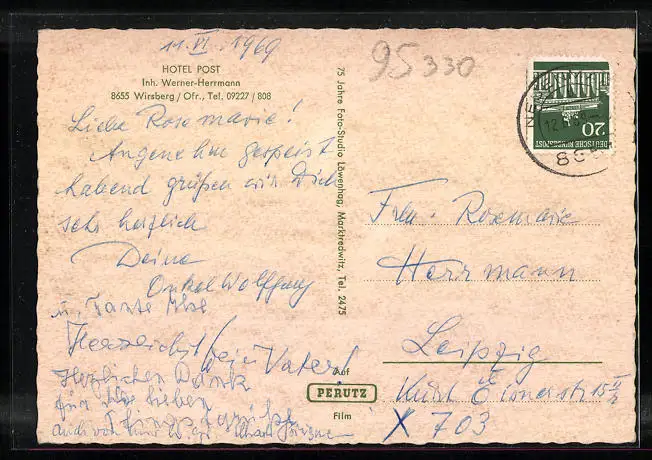 11. VI. 1969
HOTEL POST
Inh. Werner-Herrmann
8655 Wirsberg / Ofr., Tel. 09227 / 808
Liebe Rosemarie!
Angenehm gespeist
habend grüßen wir Dich
sehr herzlich
Deine
Onkel Wolfgang
u. Tante Ilse
Herzlichst Dein Vater!
Herzlichen Dank
für die lieben
auch von
75 Jahre Foto-Studio Löwenhag, Marktredwitz, Tel. 2475
Auf
PERUTZ
Film
95330
20
DEUTSCHE BUNDESPOST
NE
12.
865
Rosemarie
Herrmann
Leipzig
Kurt Eisnerstr 15 II/2
X 703